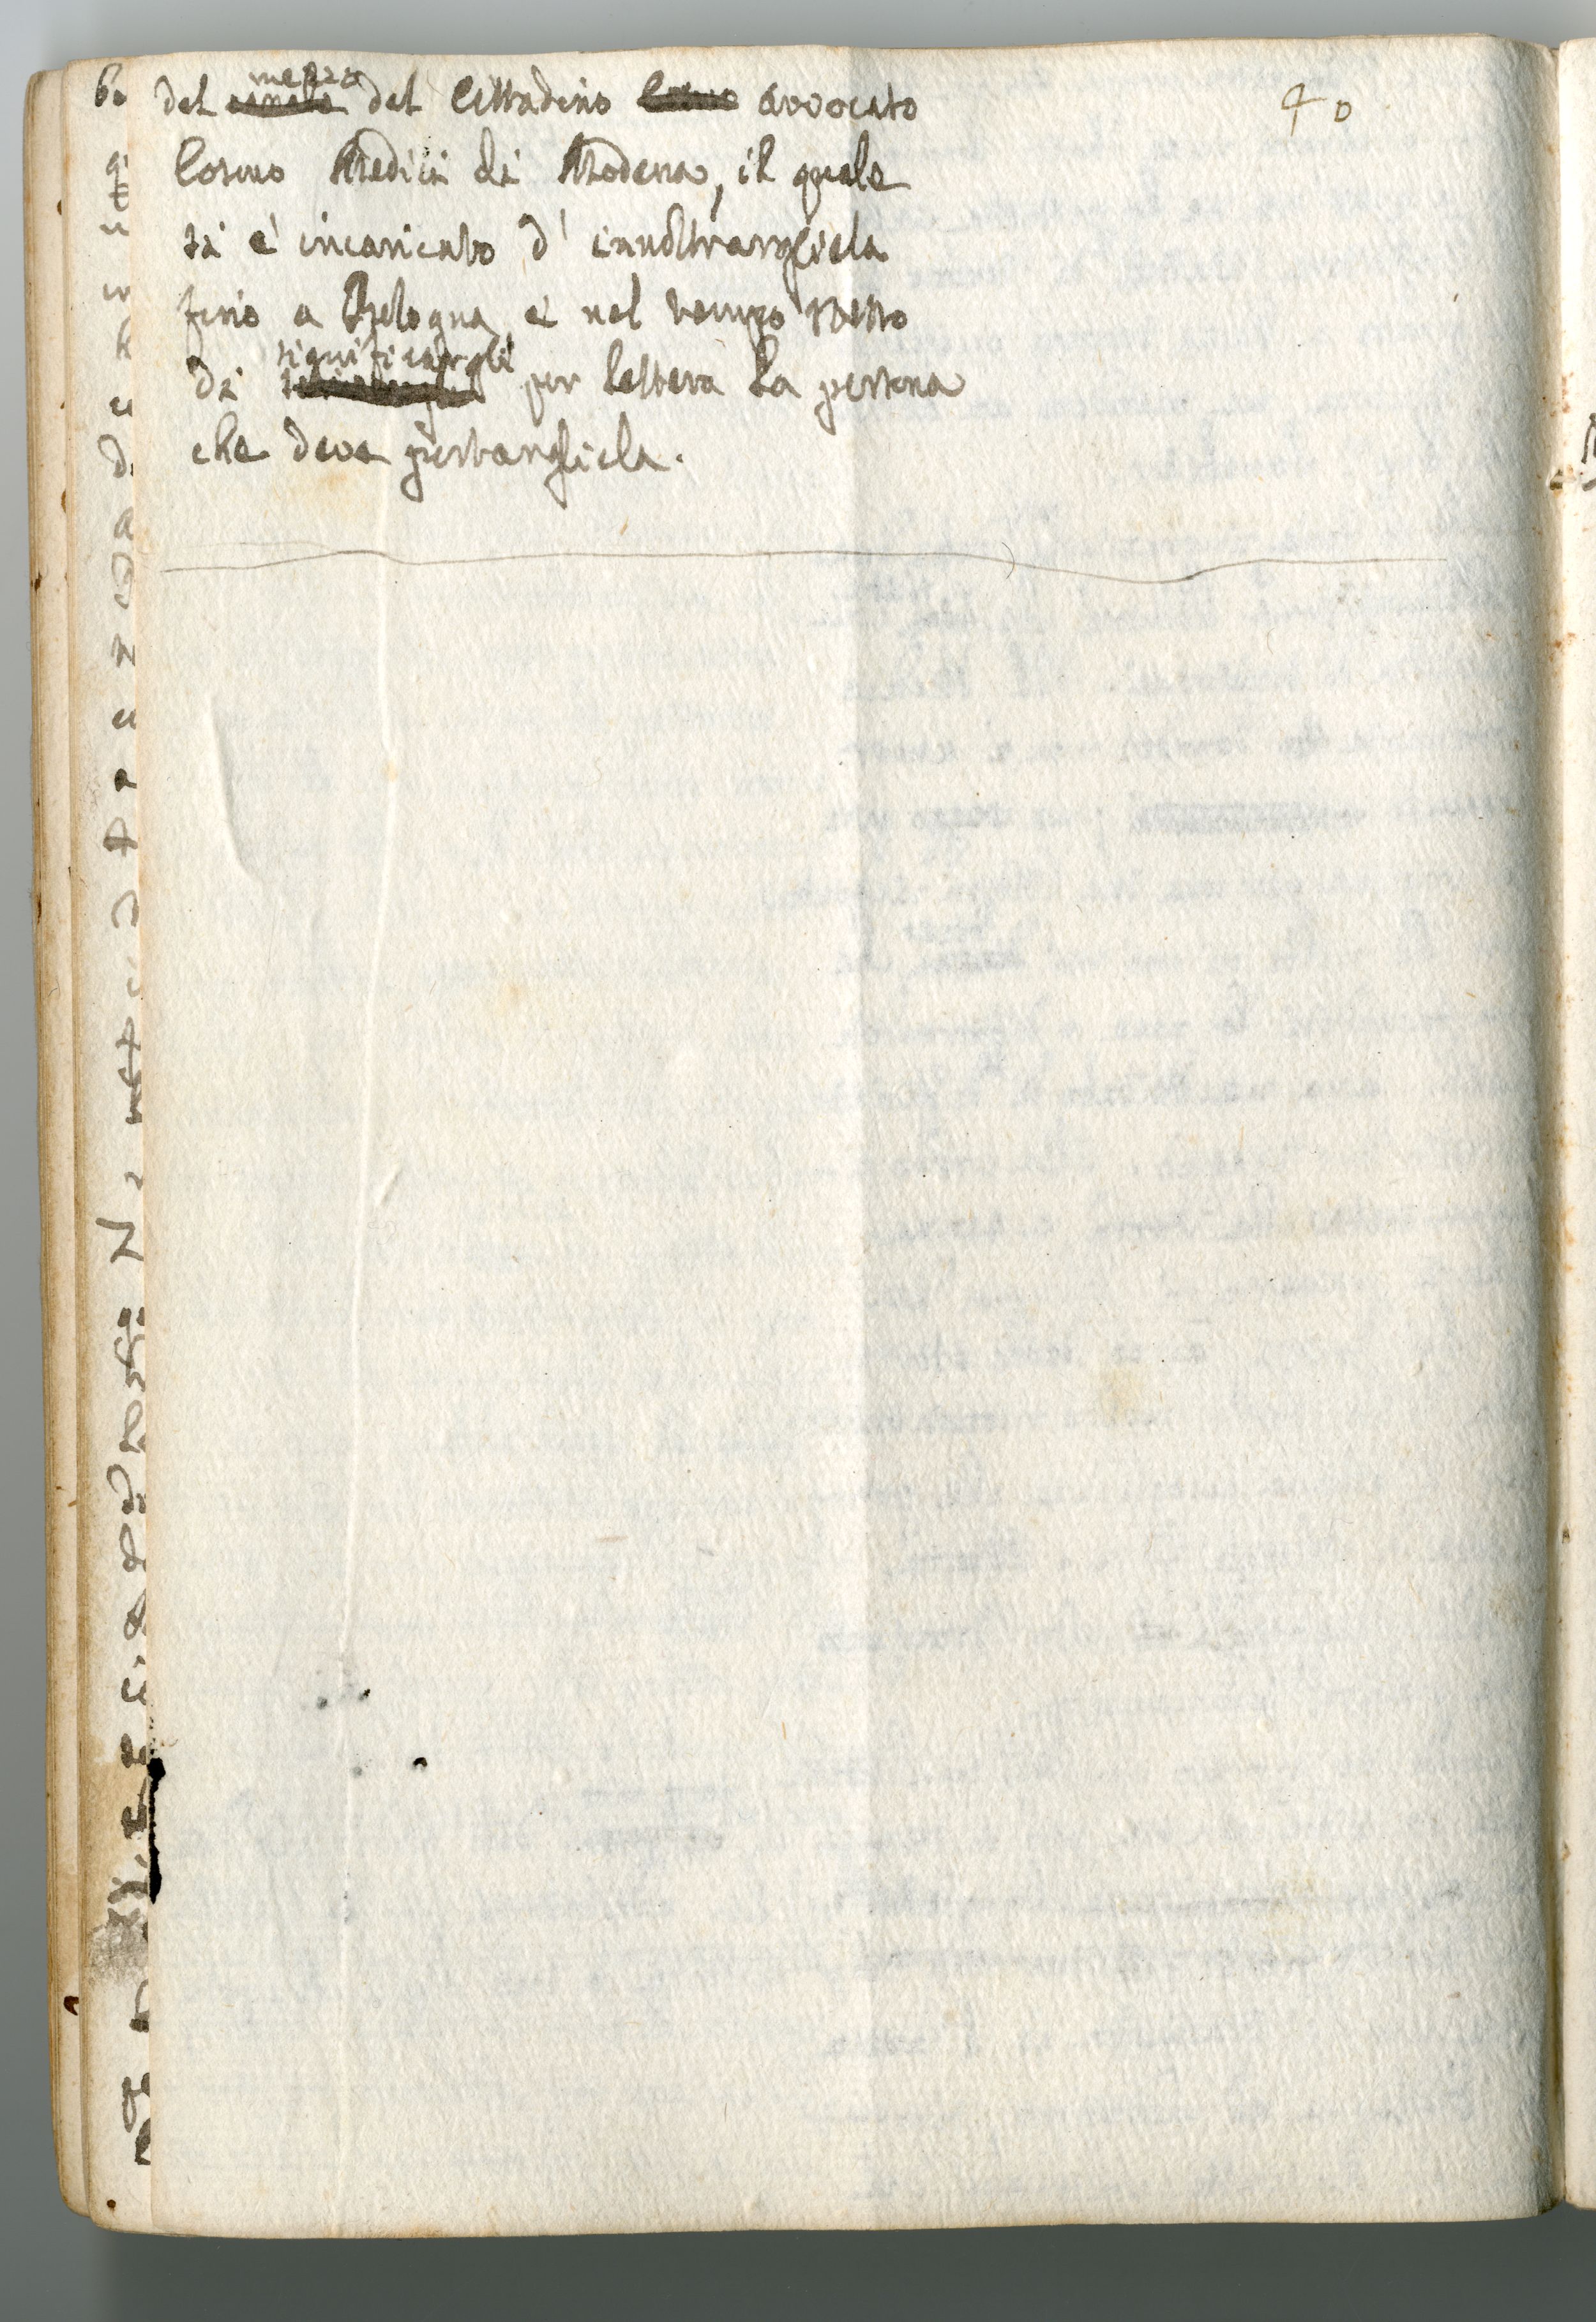 40
del mezzo del Cittadino avvocato
Cosmo Medici di Modena, il quale
si è incaricato d' innoltrargliela
fino a Bologna, e nel tempo stesso
di significargli per lettera la persona
che deve portargliela.